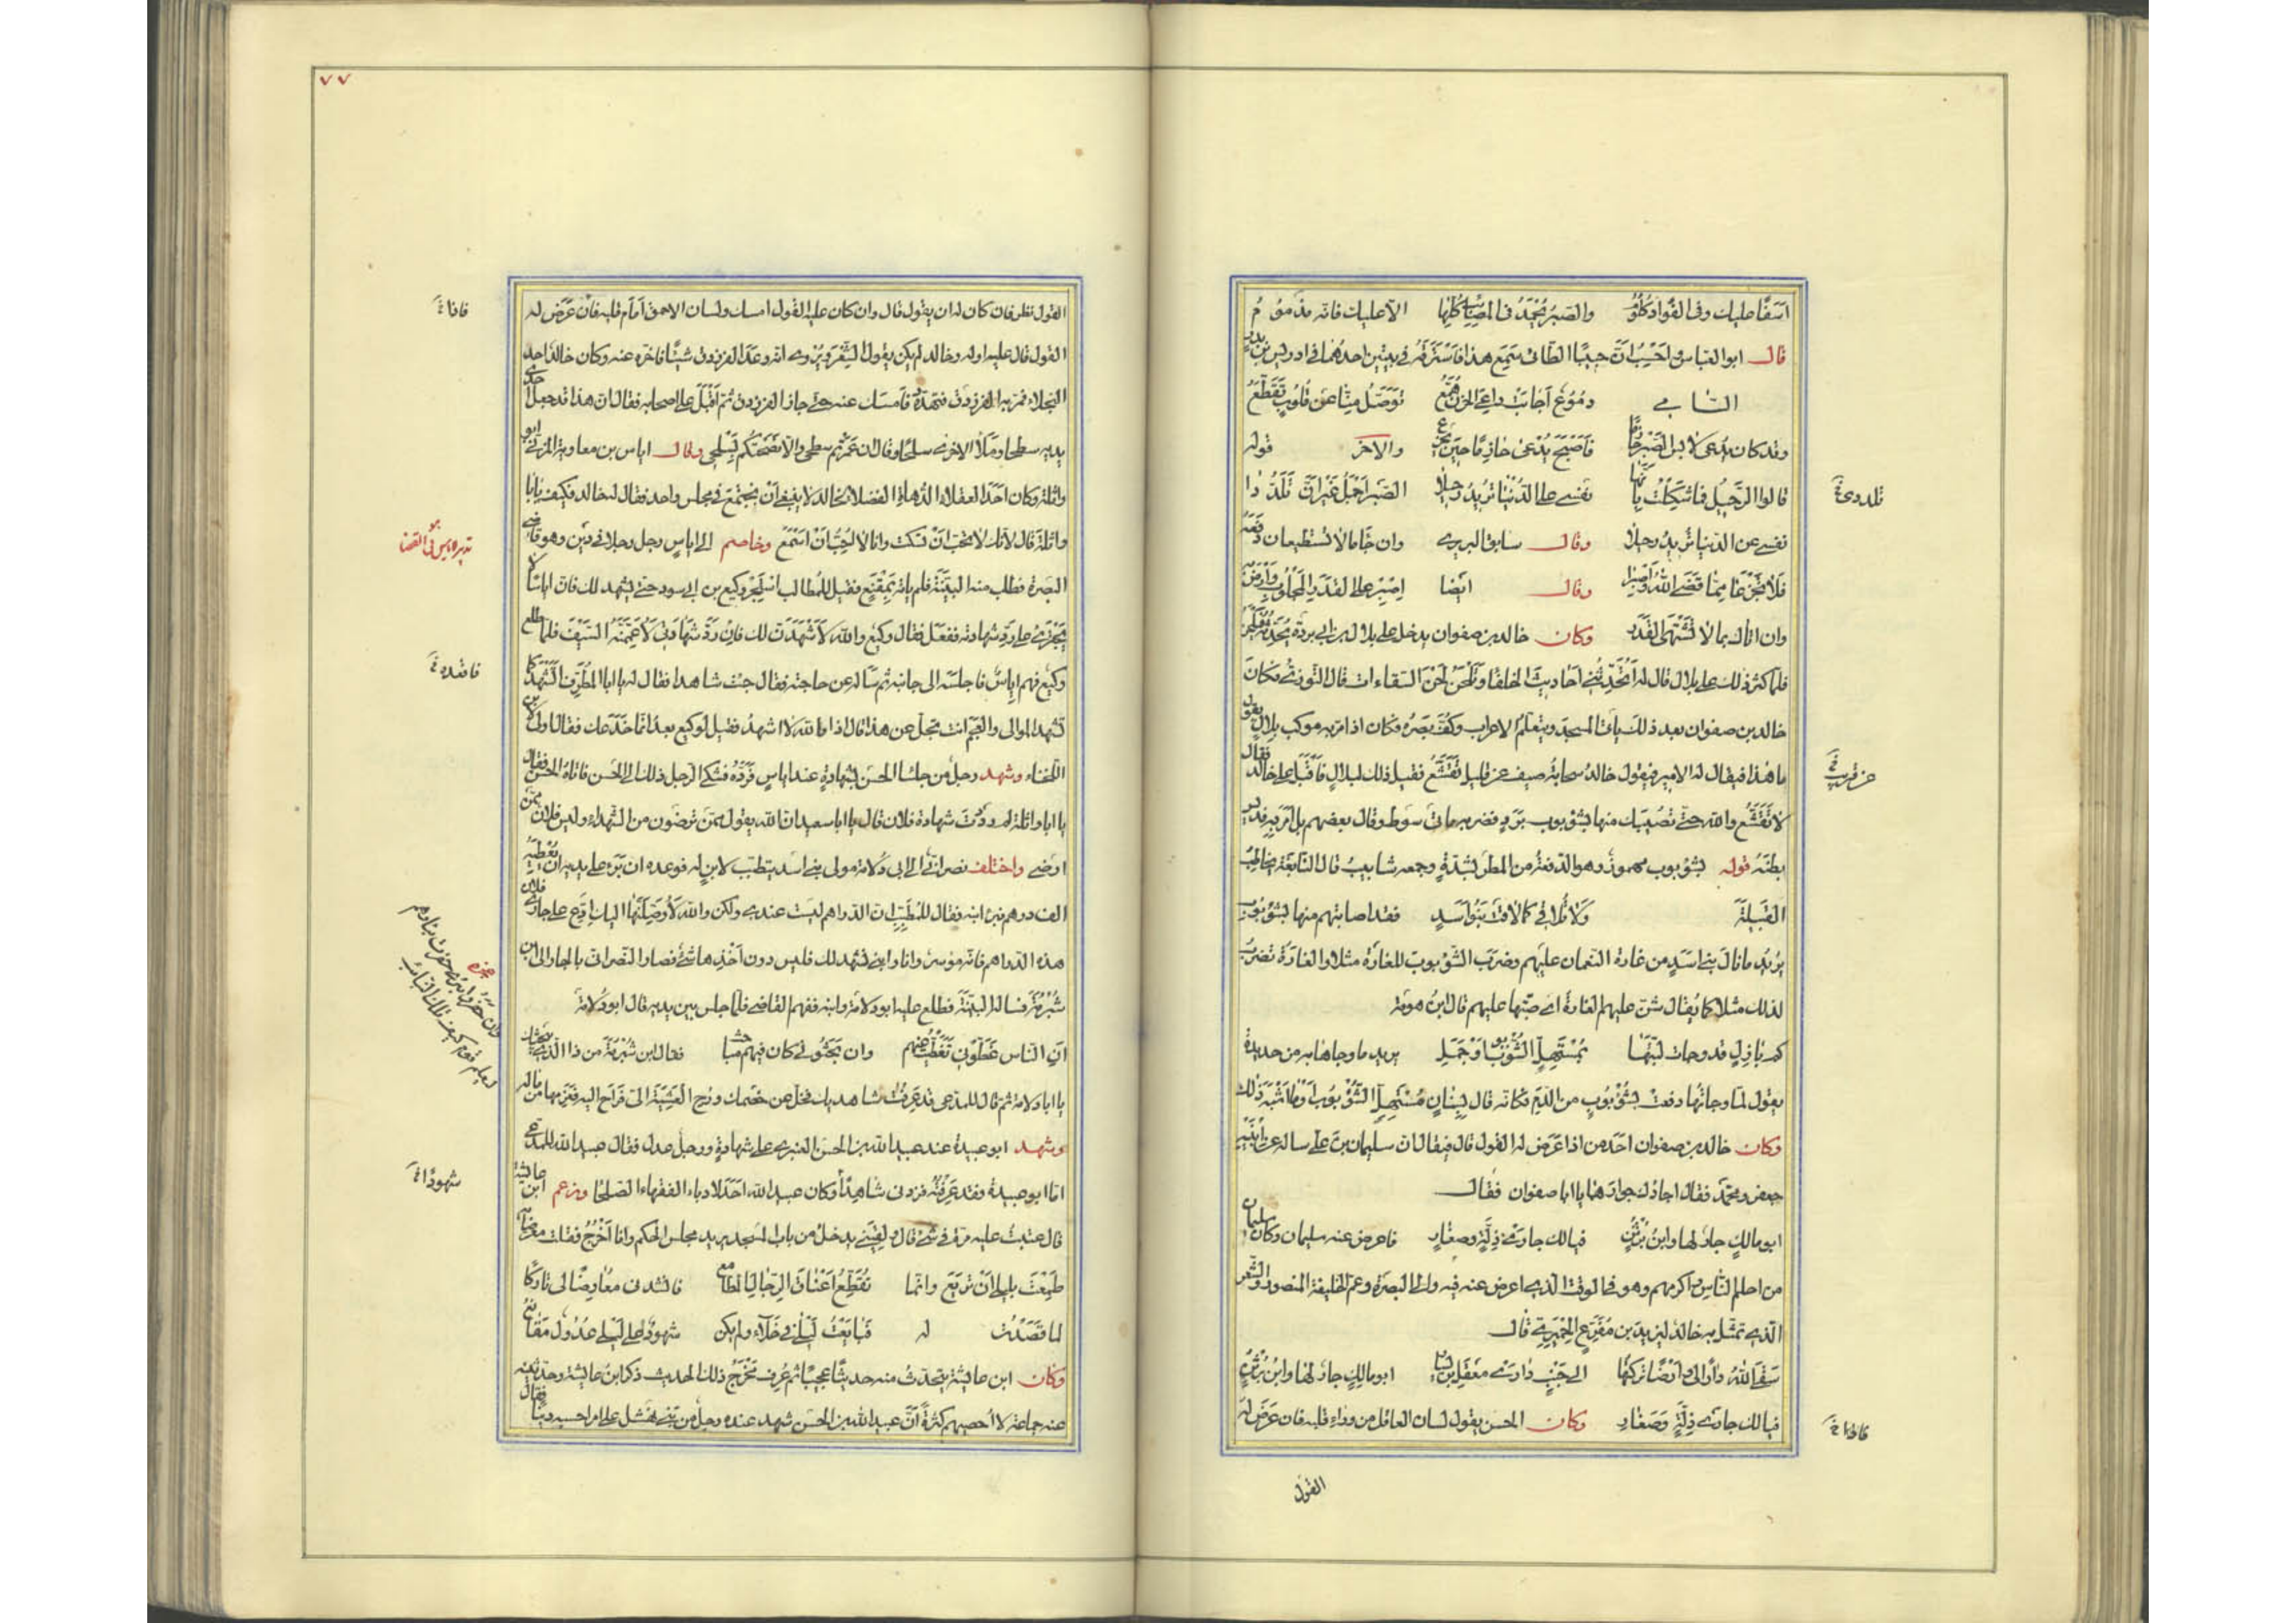 اسفًا عليك وفى الفؤاد كلوم والصبر يحمد فى المصائب كلها الا عليك فانه مذموم
قال ابو العباس واحسب انّ حبيبًا الطائى سمع هذا فاسترقه فى بيتين احدهما فى ادريس بن بدر
الشامى دموع اجابت داعى الحزن همّع توصّل منّا عن قلوب تقطّع
وقد كان يدعى لابس الصبر حازمًا فاصبح يدعى حازمًا حين يجزع والاخر قوله
قالوا الرحيل فما شككت بانّها نفسى على الدنيا تريد رحيلا الصبر اجمل غير انّ تلدّدا
نفسى عن الدنيا تريد رحيلا وقال سابق البربرى وان جا ما لا تستطيعان دفعه
فلا تجزعا ممّا قضى الله واصبرا وقال ايضا اصبر على القدر المجلوب وارض به
وان اتاك بما لا تشتهى القدر وكان خالد بن صفوان يدخل على بلال بن ابى بردة يحدثه فيلحن
فلما كثر ذلك على بلال قال له أتحدّثنى احاديث الخلفا وتلحن لحن السقاءات قال التوزى فكان
خالد بن صفوان بعد ذلك يأتى المسجد ويتعلّم الاعراب وكفّ بصره فكان اذا مرّ به موكب بلال يقول
ما هذا فيقال له الامير فيقول خالد سحابة صيف عن قليل تقشّع فقيل ذلك لبلال فاقبل على خالد فقال
لا تقشّع والله حتى تصيبك منها بشؤبوب برد فضربه مائتى سوط وقال بعضهم بل امر به فديس
بطنه قوله بشؤبوب مهموز وهو الدفعة من المطر بشدّة وجمعه شآبيب قال النابغة يخاطب
القبيلة ولا تلاقى كما لاقت بنو اسد فقد اصابتهم منها بشؤبوب
يريد ما نال بنى اسد من غارة النعمان عليهم وضرب الشؤبوب للغارة مثلا والغارة تضرب
لذلك مثلا كما يقال شنّ عليهم الغارة اى صبّها عليهم قال ابن هرمة
كم بازل قد وجأت لبّتها بمستهلّ الشؤبوب او جمل يريد ما وجاها به من حديدة
يقول لمّا وجأتها دفعت بشؤبوب من الدّم فكانه قال بسنان مستهلّ الشؤبوب او ما اشبه ذلك
وكان خالد بن صفوان احد من اذا عرض له القول قال فيقال ان سليمان بن على ساله عن ابنيه
جعفر ومحمّد فقال احمادك جوارهما يا ابا صفوان فقال
ابو مالك جار لها وابن برثن فيا لك جارى ذلّة وصغار فاعرض عنه سليمان وكان سليمان
من احلم الناس واكرمهم وهو فى الوقت الذى اعرض عنه فيه والى البصرة وعمّ الخليفة المنصور والشعر
الذى تمثّل به خالد ليزيد بن مفرّغ الحميرى قال
سقى الله دارًا لى وارضًا تركتها الى جنب دارى معقل بن يسار ابو مالك جار لها وابن برثن
فيا لك جارى ذلّة وصغار وكان الحسن يقول لسان العاقل من وراء قلبه فان عرض له
القول
تلددى
عن قريب
فاذا
٧٧
القول نظر فان كان له ان يقول قال وان كان عليه القول امسك ولسان الاحمق امام قلبه فان عرض له
القول قال عليه او له وخالد لم يكن يقول الشعر ويروى انه وعد الفرزدق شيئًا فاخّره عنه وكان خالد احد
البخلاء فمرّ به الفرزدق فتهدّده فامسك عنه حتى جاز الفرزدق ثم اقبل على اصحابه فقال ان هذا قد جعل احدى
يديه سطحا وملأ الاخرى سلحًا وقال ان عمرتم سطحى والا نضحتكم بسلحى وقال اياس بن معاوية المزنى ابو
واثلة وكان احد العقلاء الدهاة الفضلاء لخالد لا ينبغى ان نجتمع فى مجلس واحد فقال له خالد وكيف يا با
واثلة قال لانك لا تحب ان تسكت وانا لا احب ان اسمع وخاصم الى اياس رجل رجلا فى دين وهو قاضى
البصرة فطلب منه البيّنة فلم ياته بمقنع فقيل للمطالب استجر وكيع بن ابى سود حتى يشهد لك فان اياسًا لا
يجترئ على ردّ شهادته ففعل فقال وكيع والله لاشهدنّ لك فان ردّ شهادتى لاعمّمنّه السيف فلما طلع
وكيع فهم اياس فاجلسه الى جانبه ثم سأله عن حاجته فقال جئت شاهدا فقال له يا ابا المطرّف اتشهد كما
تشهد الموالى والعجم انت تجلّ عن هذا قال اذا والله لا اشهد فقيل لوكيع بعد انما خدعك فقال اولى لابن
اللخناء وشهد رجل من جلساء الحسن بشهادة عند اياس فردّه فشكا الرجل ذلك الى الحسن فاتاه الحسن فقال
يا ابا واثلة لم رددت شهادة فلان قال يا ابا سعيد ان الله يقول ممّن ترضون من الشهداء وليس فلان ممّن
ارضى واختلف نصرانى الى ابى دلامة مولى بنى اسد يتطبّب لابن له فوعده ان برئ على يديه ان يعطيه
الف درهم فبرئ ابنه فقال للمتطبّب ان الدراهم ليست عندى ولكن والله لأوصلنّها اليك ادّع على جارى فلان
هذه الدراهم فانه موسر وانا وابنى نشهد لك فليس دون اخذها شىء فصار النصرانى بالجار الى ابن
شبرمة فساله البيّنة فطلع عليه ابو دلامة وابنه ففهم القاضى فلما جلس بين يديه قال ابو دلامة
انّ الناس غطّونى تغطّيت عنهم وان بحثونى كان فيهم مباحث فقال ابن شبرمة من ذا الذى يبحثك
يا ابا دلامة ثم قال للمدّعى قد عرفت شاهديك فخلّ عن خصمك ورح العشيّة الىّ فراح اليه فغرمها من ماله
وشهد ابو عبيدة عند عبيد الله بن الحسن العنبرى على شهادة ورجل عدل فقال عبيد الله للمدّعى
امّا ابو عبيدة فقد عرفته فزدنى شاهدًا وكان عبيد الله احد الادباء الفقهاء الصلحا وزعم ابن عائشة
قال عتبت عليه مرّة فى شىء قال فلقينى يدخل من باب المسجد يريد مجلس الحكم وانا اخرج فقلت معرّضًا
طمعت بليلى ان تريع وانّما تقطّع اعناق الرجال المطامع فانشدنى معارضًا لى تاركًا
لما قصدت له فبايعت ليلى فى خلاء ولم يكن شهود على ليلى عدول مقانع
وكان ابن عائشة يتحدث منه حديثًا عجيبًا ثم عرف مخرج ذلك الحديث ذكر ابن عائشة وحدثنيه
عنه جماعة لا احصيهم كثرة انّ عبيد الله بن الحسن شهد عنده رجل من بنى نهشل على امر احسبه دينا فقال
فاذا
شهودًا